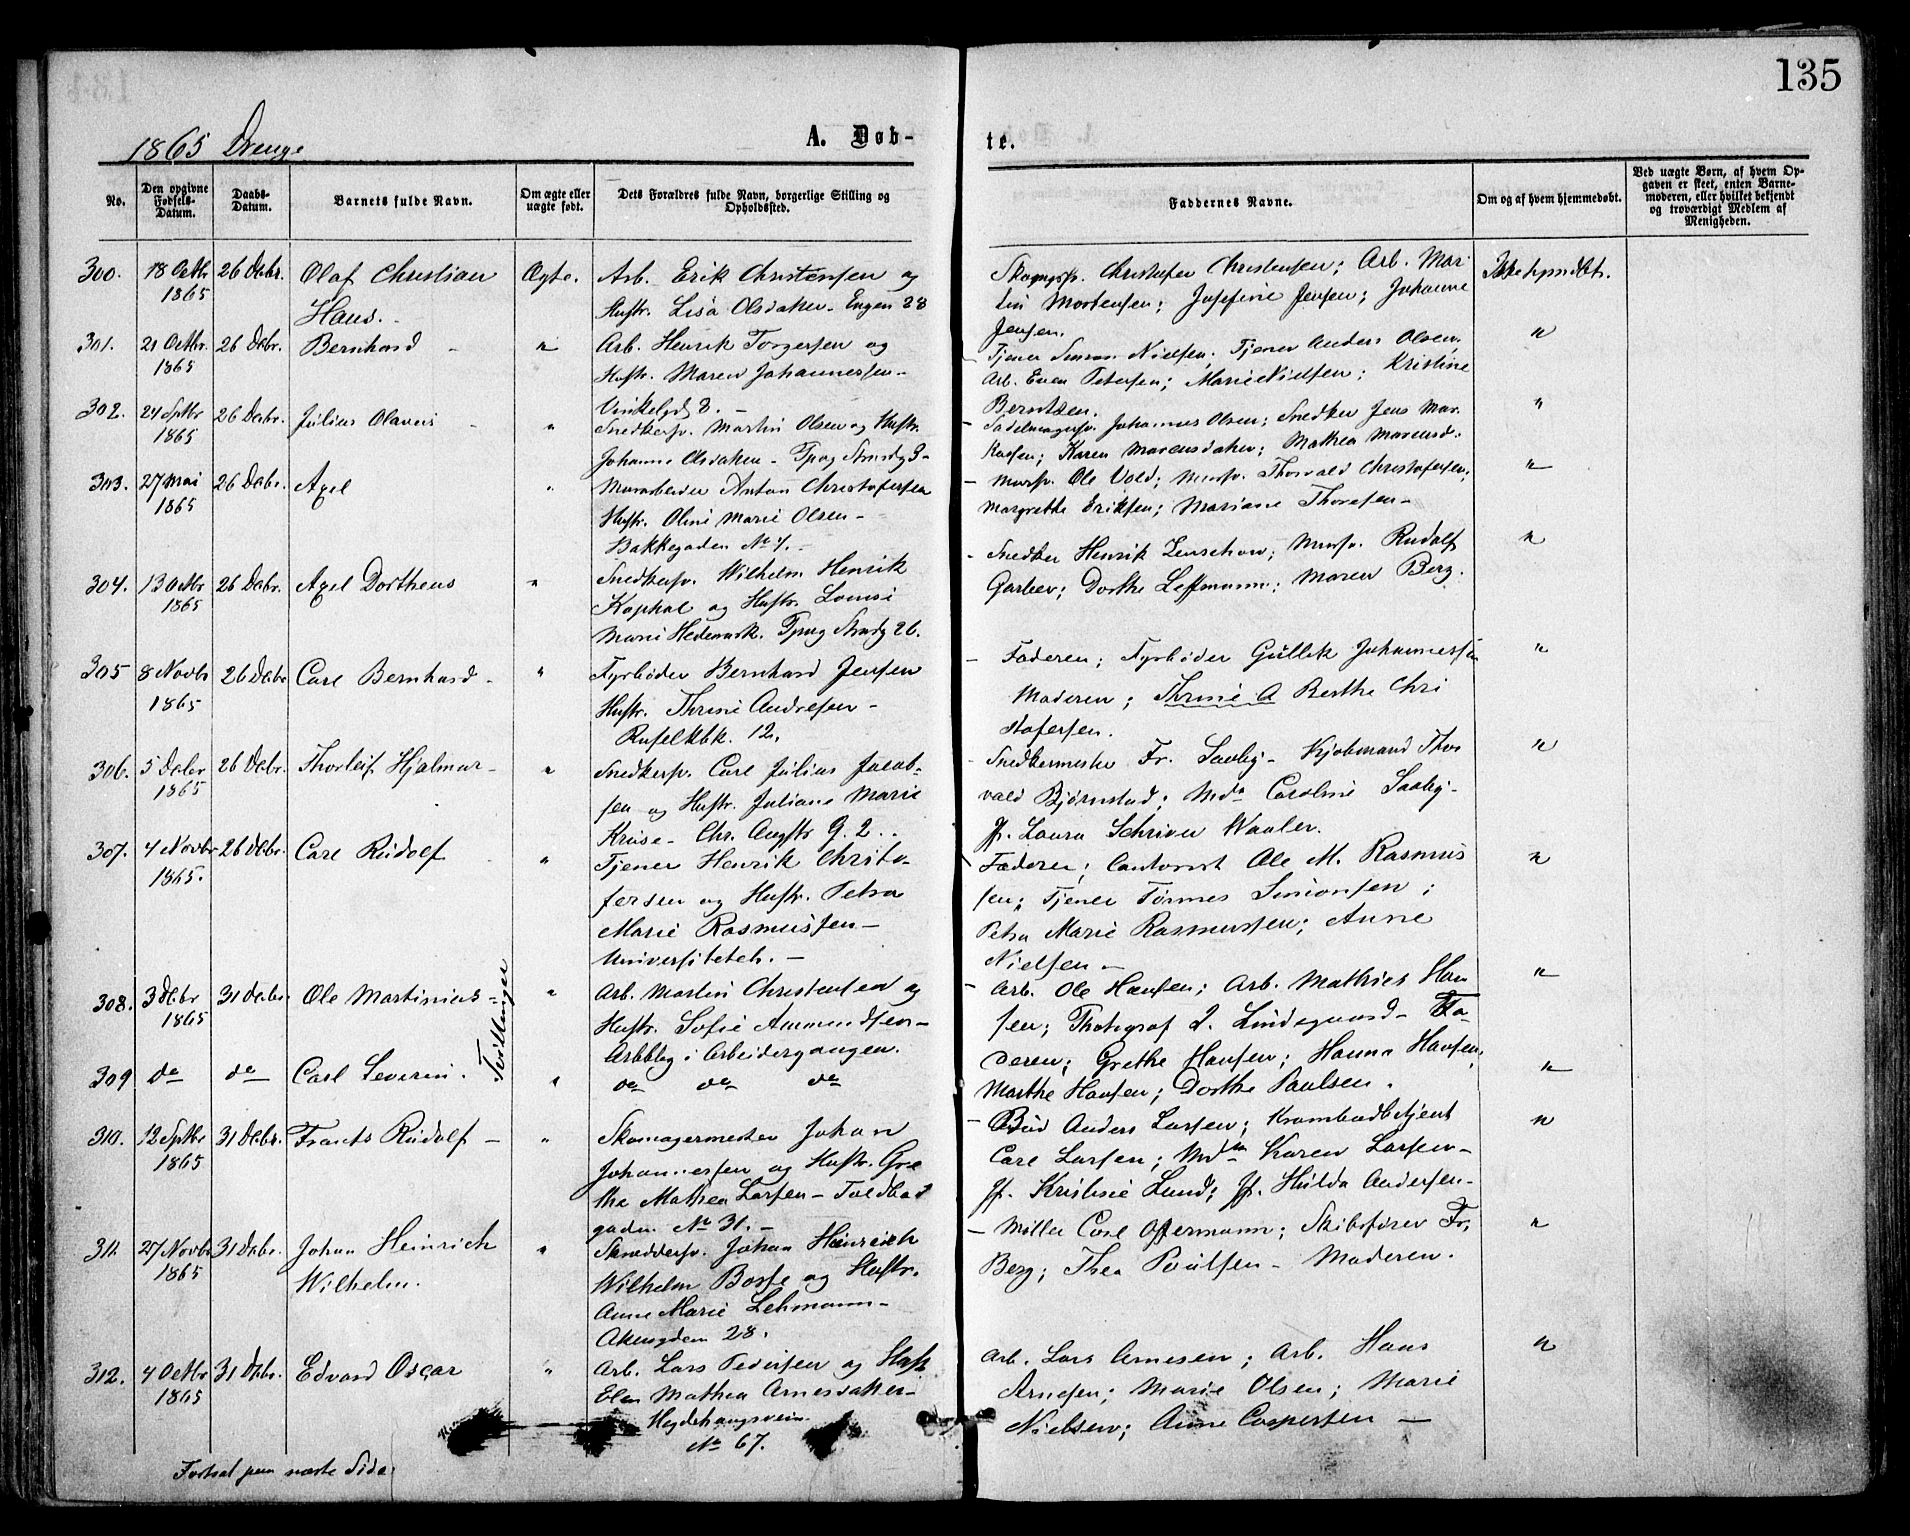 135
1865 Drenge
A. Døb-
te.
No.
Den opgivne Fødsels-Datum.
Daabs-Datum.
Barnets fulde Navn.
Om ægte eller uægte født.
Dets Forældres fulde Navn, borgerlige Stilling og Opholdssted.
Faddernes Navne.
Om og af hvem hjemmedøbt.
Ved uægte Børn, af hvem Opgaven er skeet, enten Barnemoderen, eller hvilket bekjendt og troværdigt Medlem af Menigheden.
300. 18 Octbr 1865 26 Debr. Olaf Christian Hans. Ægte.
Arb. Erik Christensen og
Hustr. Lisa Olsdatter - Engen 28
Christensen; Arb. Mar-
tin Mortensen; Josefine Jensen; Johanne
Jensen.
301. 21 Octbr. 1865 26 Debr. Bernhard - "
Arb. Henrik Torgersen og
Hustr. Maren Johannessen -
Vinkelgd 8. -
Tjener Simon Nielsen; Tjener Anders Olsen,
Arb. Even Petersen; Marie Nielsen; Kristine
Berntsen. "
302. 24 Sptbr 1865 26 Debr. Julius Olavus - "
Snedkersv. Martin Olsen og Hustr.
Johanne Olsdatter - Tpag Strædg 3 -
- Sadelmagersv. Johannes Olsen; Snedker Jens Mar-
kusen; Karen Marcusdatter; Mathea Marcusd. "
303. 27 Mai 1865 26 Debr. Axel "
Murarbeider Anton Christofersen
Hustr. Oline Marie Olsen -
Bakkegaden No 7. -
- Mursv. Ole Vold; Mursv. Thorvald Christofersen;
Margrethe Eriksen; Mariane Thoresen - "
304. 13 Octbr 1865 26 Debr. Axel Dortheus "
Snedkersv. Wilhelm Henrik
Kophal og Hustr. Lovise
Marie Hedemark. Tpag Strædg 26.
- Snedker Henrik Lenschow; Mursv. Rudolf
Garber; Dorthe Leffmann; Maren Berg. "
305 8 Novbr 1865 26 Debr Carl Bernhard - "
Fyrbøder Bernhard Jensen
Hustr. Thrine Andresen -
Ruselkbk. 12.
- Faderen; Fyrbøder Gullik Johannessen
Moderen; Thrine A Berthe Chri
stofersen. "
306. 5 Debr 1865 26 Debr. Thorleif Hjalmar - "
Snedkersv. Carl Julius Jacob-
sen og Hustr. Juliane Marie
Kruse - Chr. Augstr G. 2. .
- Snedkermester Fr. Saxby - Kjøbmand Thor
vald Bjørnstad; Mda Caroline Saxby -
Jf. Laura Schriver Waaler. "
307. 4 Novbr 1865. 26 Debr. Carl Rudolf "
Tjener Henrik Christo-
fersen og Hustr. Petra
Marie Rasmussen -
Universitetet. -
- Faderen; Cantorist Ole M. Rasmus
sen; Tjener Tørmes Simonsen;
Petra Marie Rasmussen; Anne
Nielsen - "
308. 3 Debr 1865 31 Debr Ole Martinius - Tvillinger "
Arb. Martin Christensen og
Hustr. Sofie Ammundsen -
Arbblg i Arbeidergangen.
- Arb. Ole Hansen; Arb. Mathias Han
sen; Fotograf L. Lindegaard - Fa-
deren; Grethe Hansen; Hanna Hansen;
Marthe Hansen; Dorthe Paulsen. "
309 do do Carl Severin. " do do do "
310. 12 Sptbr 1865 31 Debr. Frants Rudolf - "
Skomagermester Johan
Johannessen og Hustr. Gre
the Mathea Larsen - Toldbod
gaden No 31. -
- Bud Anders Larsen; Krambodbetjent
Carl Larsen; Mda Karen Larsen -
Jf. Kristine Lund; Jf. Hulda Andersen - "
311. 27 Novbr 1865 31 Debr. Johan Heinrich Wilhelm. "
Skreddersv. Johan Heinrich
Wilhelm Bosse og Hustr.
Anne Marie Lehmann -
Akersgaden 28.
- Møller Carl Offermann; Skibsfører Fr.
Berg; Thea Poulsen - Moderen. "
312. 4 Octbr 1865 31 Debr. Edvard Oscar "
Arb. Lars Pedersen og Hustr
Elen Mathea Arnesdatter -
Hegdehaugsvein
No 67.
Arb. Lars Arnesen; Arb. Hans
Arnesen; Marie Olsen; Marie
Nielsen; Anne Caspersen - "
Fortsat paa næste Side